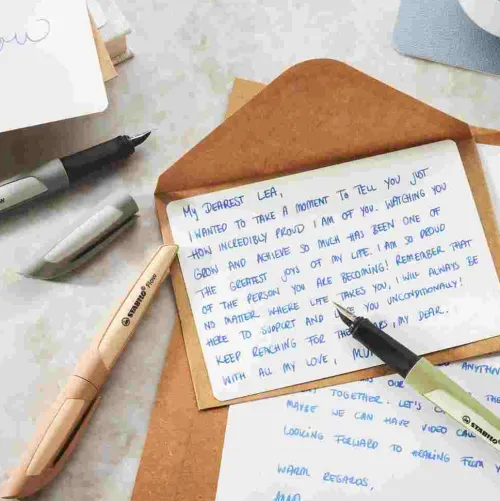 My DEAREST LEA,
I WANTED TO TAKE A MOMENT TO TELL YOU JUST
HOW INCREDIBLY PROUD I AM OF YOU. WATCHING YOU
GROW AND ACHIEVE SO MUCH HAS BEEN ONE OF
THE GREATEST JOYS OF MY LIFE. I AM SO PROUD
OF THE PERSON YOU ARE BECOMING! REMEMBER THAT
NO MATTER WHERE LIFE TAKES YOU, I WILL ALWAYS BE
HERE TO SUPPORT AND YOU UNCONDITIONALLY!
KEEP REACHING FOR THE , MY DEAR.
WITH ALL MY LOVE,
TOGETHER. LET'S
MAYBE WE CAN HAVE VIDEO CALL
LOOKING FORWARD TO HEARING FROM
WARM REGARDS,
STABILO Flow
STABILO